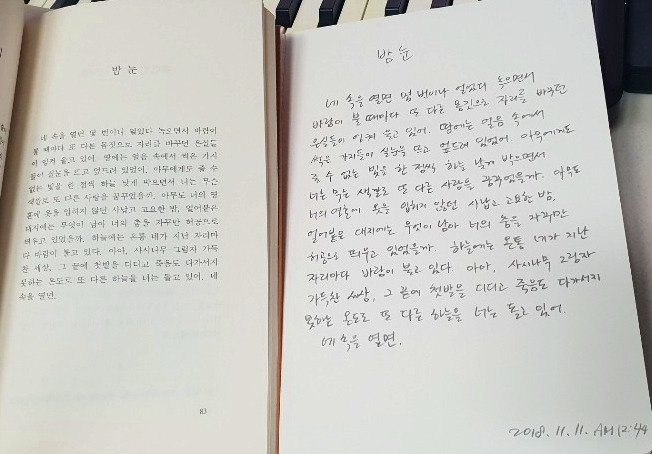 밤 눈
네 속을 열면 몇 번이나 얼었다 녹으면서 바람이
불 때마다 또 다른 몸짓으로 자리를 바꾸던 은실들
이 엉켜 울고 있어. 땅에는 얼음 속에서 썩은 가지
들이 실눈을 뜨고 엎드려 있었어. 아무에게도 줄 수
없는 빛을 한 점씩 하늘 낮게 박으면서 너는 무슨
색깔로 또 다른 사랑을 꿈꾸었을까. 아무도 너의 영
혼에 옷을 입히지 않던 사납고 고요한 밤, 얼어붙은
대지에는 무엇이 남아 너의 춤을 자꾸만 허공으로
띄우고 있었을까. 하늘에는 온통 네가 지난 자리마
다 바람이 불고 있다. 아아, 사시나무 그림자 가득
찬 세상, 그 끝에 첫발을 디디고 죽음도 다가서지
못하는 온도로 또 다른 하늘을 너는 돌고 있어. 네
속을 열면.
83
밤 눈
네 속을 열면 몇 번이나 얼었다 녹으면서
바람이 불 때마다 또 다른 몸짓으로 자리를 바꾸던
은실들이 엉켜 울고 있어. 땅에는 얼음 속에서
썩은 가지들이 실눈을 뜨고 엎드려 있었어. 아무에게도
줄 수 없는 빛을 한 점씩 하늘 낮게 박으면서
너는 무슨 색깔로 또 다른 사랑을 꿈꾸었을까. 아무도
너의 영혼에 옷을 입히지 않던 사납고 고요한 밤,
얼어붙은 대지에는 무엇이 남아 너의 춤을 자꾸만
허공으로 띄우고 있었을까. 하늘에는 온통 네가 지난
자리마다 바람이 불고 있다. 아아, 사시나무 그림자
가득찬 세상, 그 끝에 첫발을 디디고 죽음도 다가서지
못하는 온도로 또 다른 하늘을 너는 돌고 있어.
네 속을 열면.
2018. 11. 11. AM 12:44